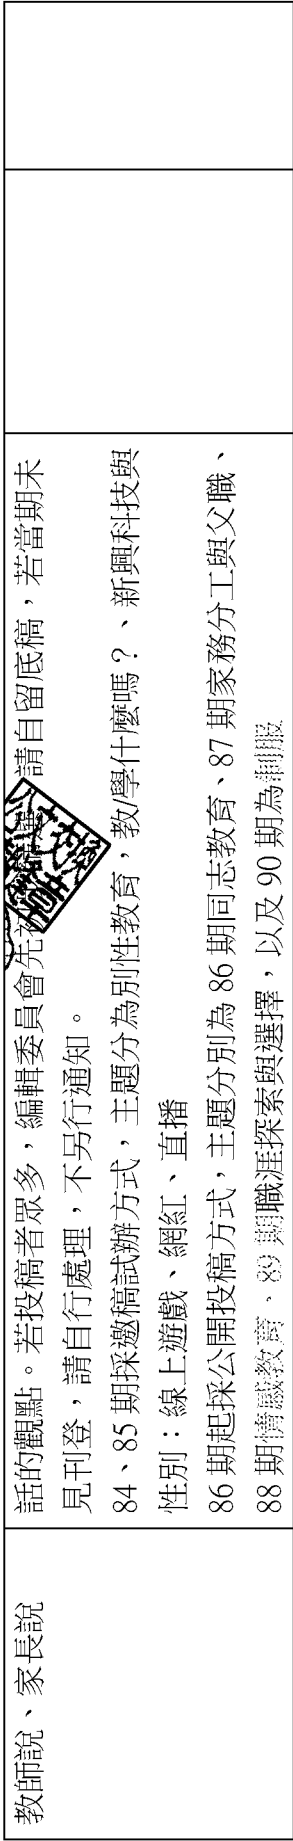 教師說、家長說
話的觀點。若投稿者眾多，編輯委員會先 請自留底稿，若當期未
見刊登，請自行處理，不另行通知。
84、85 期採邀稿試辦方式，主題分為別性教育，教/學什麼嗎？、新興科技與
性別：線上遊戲、網紅、直播
86 期起採公開投稿方式，主題分別為 86 期同志教育、87 期家務分工與父職、
88 期情感教育、89 期職涯探索與選擇，以及 90 期為制服